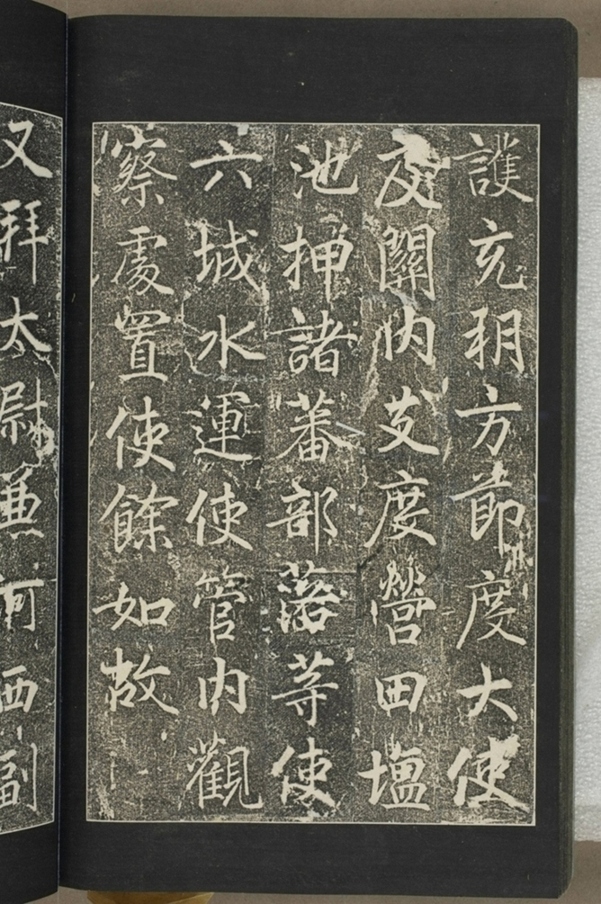 護充朔方節度大使
及關内支度營田塩
池押諸蕃部落等使
六城水運使管内觀
察處置使餘如故
又拜太尉兼河西副